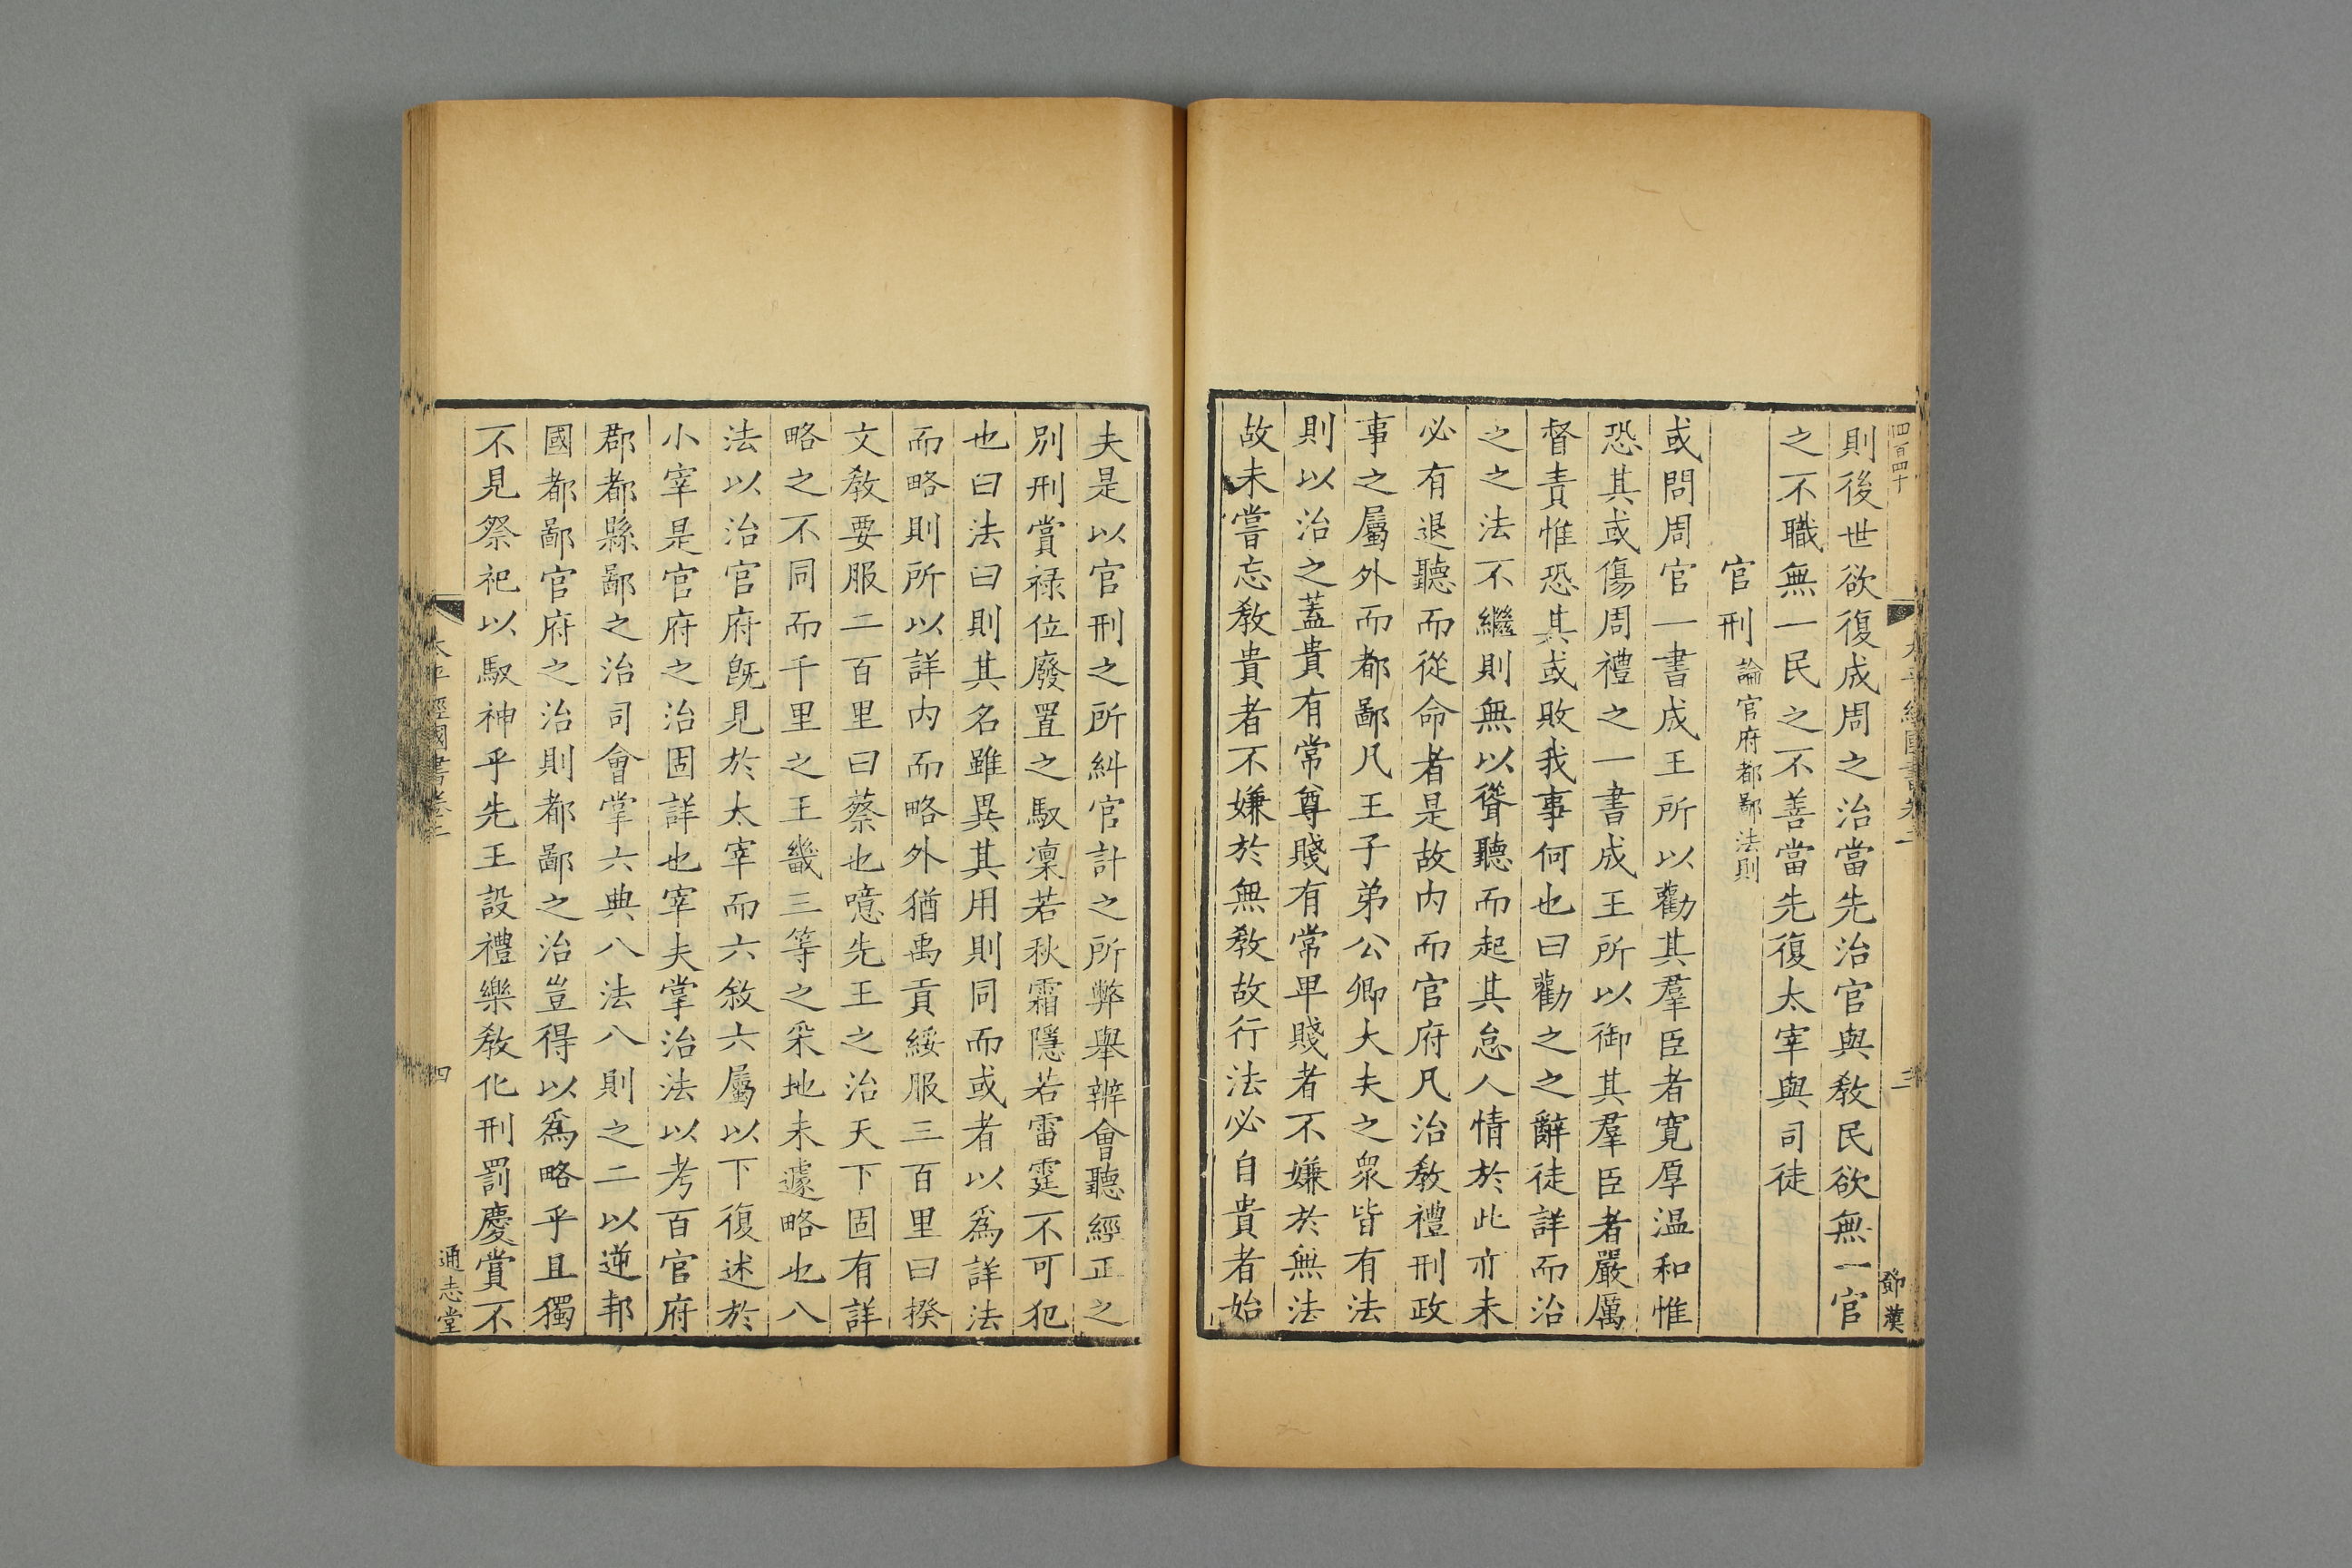 四百四十
太平經國書卷二
三
鄧漢
則後世欲復成周之治當先治官與敎民欲無一官
之不職無一民之不善當先復太宰與司徒
官刑論官府都鄙法則
或問周官一書成王所以勸其羣臣者寛厚温和惟
恐其或傷周禮之一書成王所以御其羣臣者嚴厲
督責惟恐其或敗我事何也曰勸之之辭徒詳而治
之之法不繼則無以聳聽而起其怠人情於此亦未
必有退聽而從命者是故内而官府凡治敎禮刑政
事之屬外而都鄙凡王子弟公卿大夫之衆皆有法
則以治之蓋貴有常尊賤有常卑賤者不嫌於無法
故未嘗忘敎貴者不嫌於無敎故行法必自貴者始
夫是以官刑之所糾官計之所弊舉辨會聽經正之
别刑賞祿位廢置之馭凜若秋霜隱若雷霆不可犯
也曰法曰則其名雖異其用則同而或者以爲詳法
而略則所以詳内而略外猶禹貢綏服三百里曰揆
文敎要服二百里曰蔡也噫先王之治天下固有詳
略之不同而千里之王畿三等之采地未遽略也八
法以治官府旣見於太宰而六敘六屬以下復述於
小宰是官府之治固詳也宰夫掌治法以考百官府
郡都縣鄙之治司會掌六典八法八則之二以逆邦
國都鄙官府之治則都鄙之治豈得以爲略乎且獨
不見祭祀以馭神乎先王設禮樂敎化刑罰慶賞不
太平經國書卷二
四
通志堂